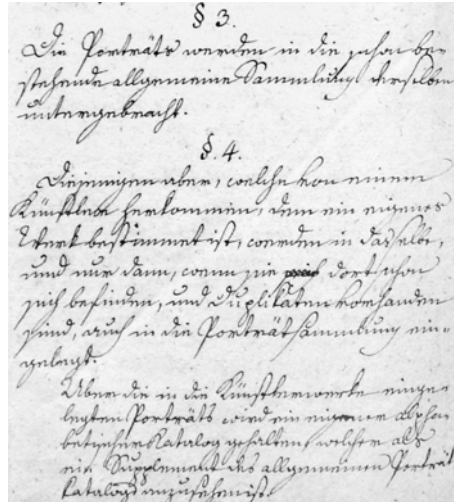 § 3.
Die Porträts werden in die schon be-
stehende allgemeine Sammlung derselben
untergebracht.
§. 4.
Diejenigen aber, welche von einem
Künstler herkommen, dem ein eigenes
Werk bestimmet ist, werden in dasselbe,
und nur dann, wenn sie dort schon
sich befinden, und Duplikaten vorhanden
sind, auch in die Porträtsammlung ein-
gelegt.
Über die in die Künstlerwerke einge-
legten Porträts wird ein eigener alpha-
betischer Katalog gehalten, welcher als
ein Supplement des allgemeinen Porträt
katalogs anzusehen ist.